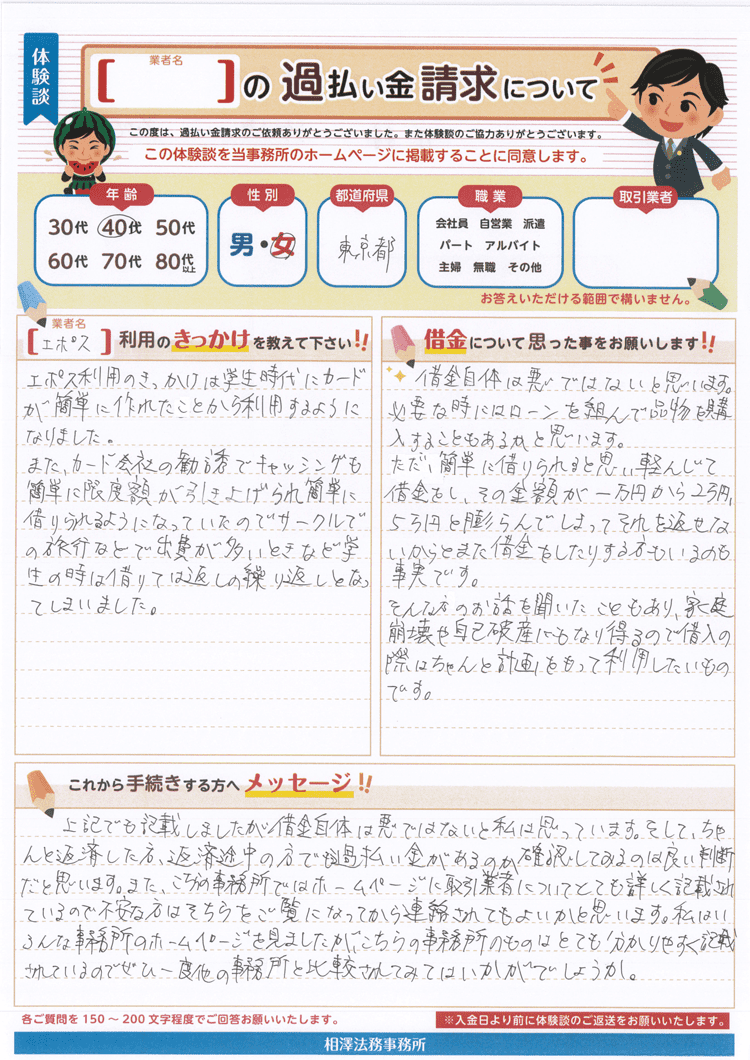 体験談
業者名
【　　】の過払い金請求について
この度は、過払い金請求のご依頼ありがとうございました。また体験談のご協力ありがとうございます。
この体験談を当事務所のホームページに掲載することに同意します。
年齢
30代 40代 50代
60代 70代 80代以上
性別
男・女
都道府県
東京都
職業
会社員 自営業 派遣
パート アルバイト
主婦 無職 その他
取引業者
お答えいただける範囲で構いません。
業者名
【エポス】利用のきっかけを教えて下さい!!
エポス利用のきっかけは学生時代にカード
が簡単に作れたことから利用するように
なりました。
また、カード会社の勧誘でキャッシングも
簡単に限度額が引き上げられ簡単に
借りられるようになっていたのでサークルで
の旅行などで出費が多いときなど学
生の時は借りては返しの繰り返しとなっ
てしまいました。
借金について思った事をお願いします!!
借金自体は悪ではないと思います。
必要な時にはローンを組んで品物を購
入することもあるかと思います。
ただ、簡単に借りられると思い軽んじて
借金をし、その金額が一万円から2万円、
5万円と膨らんでしまってそれを返せな
いからとまた借金をしたりする方もいるのも
事実です。
そんな方のお話を聞いたこともあり、家庭
崩壊や自己破産にもなり得るので借入の
際はちゃんと計画をもって利用したいもの
です。
これから手続きする方へメッセージ!!
上記でも記載しましたが借金自体は悪ではないと私は思っています。そして、ちゃ
んと返済した方、返済途中の方でも過払い金があるのか確認してみるのは良い判断
だと思います。また、こちらの事務所ではホームページに取引業者についてとても詳しく記載され
ているので不安な方はそちらをご覧になってから連絡されてもよいかと思います。私はい
ろんな事務所のホームページを見ましたが、こちらの事務所のものはとても分かりやすく記載
されているのでぜひ一度他の事務所と比較されてみてはいかがでしょうか。
各ご質問を150～200文字程度でご回答お願いいたします。
※入金日より前に体験談のご返送をお願いいたします。
相澤法務事務所